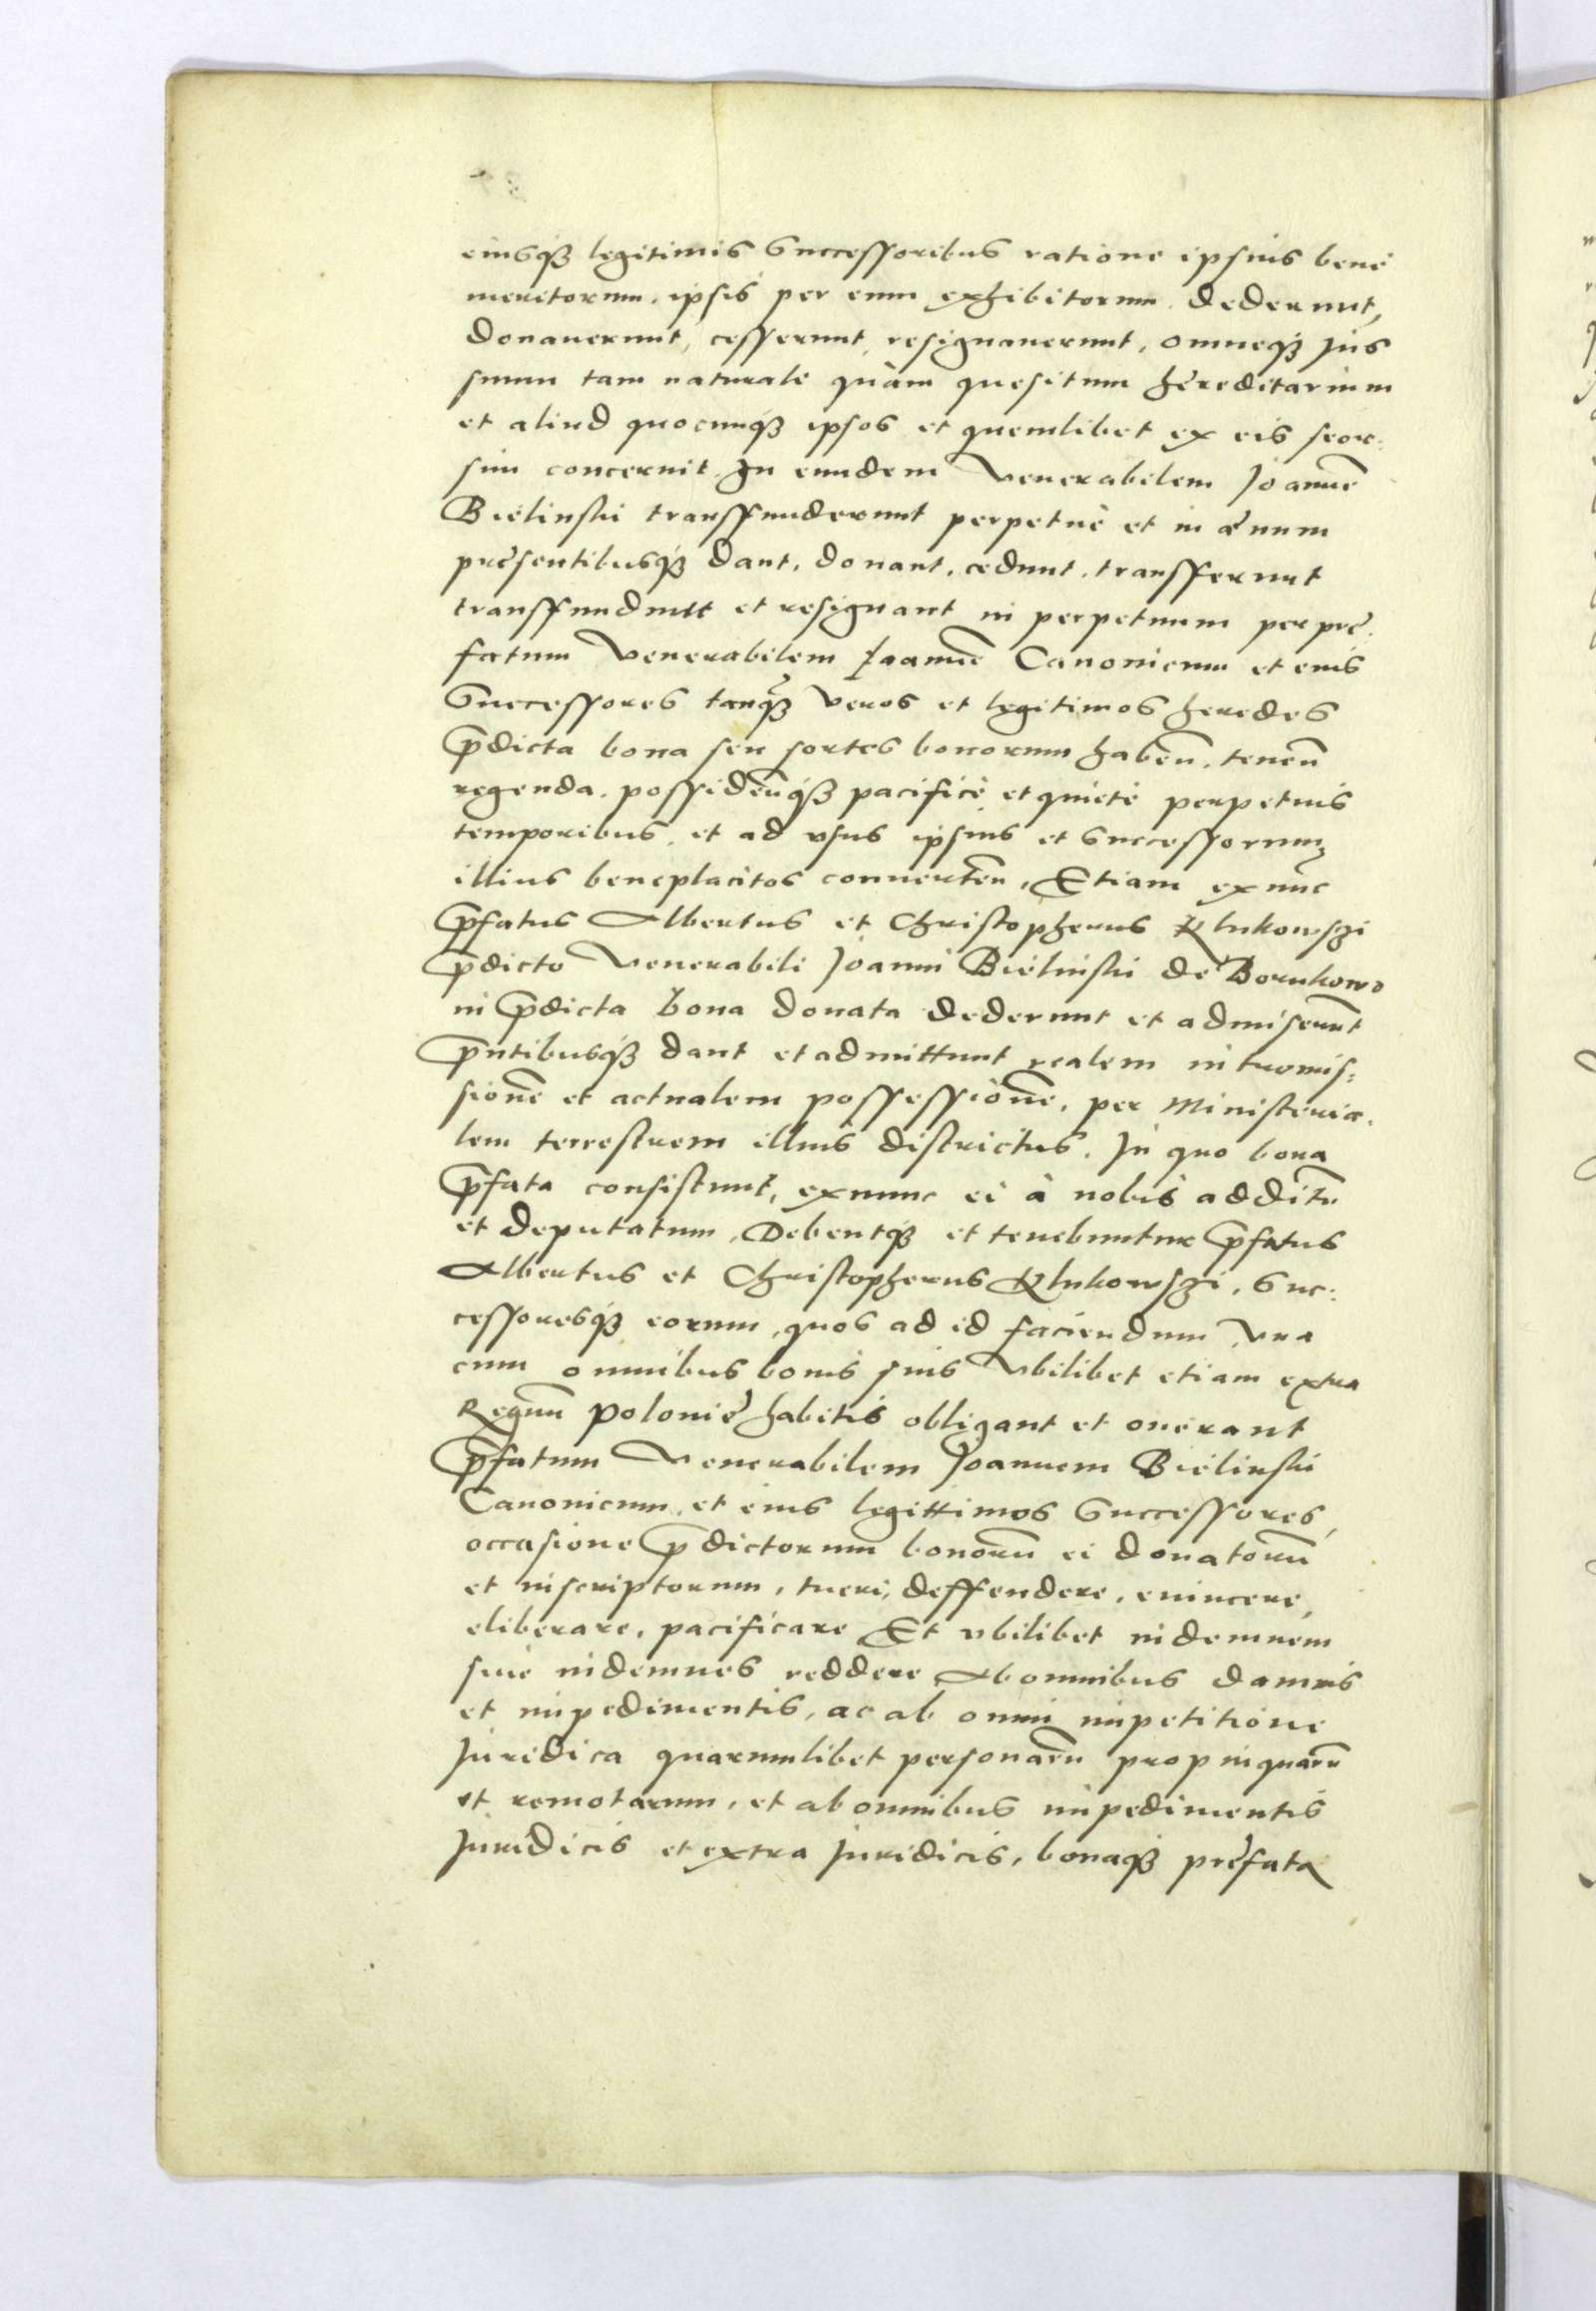 eiusqȝ legitimis Successoribus ratione ipsius bene
meritorum, ipsis per eum exhibitorum. dederunt,
donauerunt, cesserunt, resignauerunt, omneqȝ Jus
suum tam naturale quàm quesitum hęreditarium
et aliud quocunqȝ ipsos et quemlibet ex eis seor:
sim concernit. In eundem Venerabilem Joannē
Bielinski transffuderunt perpetuè et in ęuum
pręsentibusqȝ dant, donant, cedunt, transfferunt
transffundutt et resignant in perpetuum per prę:
fatum Venerabilem Joannē Canonicum et eius
Successores tanqȝ veros et legitimos heredes
p̄dicta bona seu sortes bonorum habēn. tenēn
regenda. possidēnqȝ pacificè et quietè perpetuis
temporibus, et ad vsus ipsius et Successorum
illius beneplacitos conuertēn. Etiam ex nūc
p̄fatus Albertus et Christopherus Klukowszi
p̄dicto Venerabili Joanni Bielinski de Borukowo
in p̄dicta bona donata dederunt et admiserūt
p̄ntibusqȝ dant et admittunt realem intromis:
sionē et actualem possessionē, per Ministeria:
lem terrestrem illius districtus. In quo bona
p̄fata consistunt, exnunc ei à nobis additū
et deputatum. Debentqȝ et tenebuntur p̄fatus
Albertus et Christopherus Klukowszi. Suc:
cessoresqȝ eorum, quos ad id faciendum vna
cum omnibus bonis suis vbilibet etiam extra
Regnū Polonię habitis obligant et onerant
p̄fatum Venerabilem Joannem Bielinski
Canonicum. et eius legittimos Successores,
occasione p̄dictorum bonorū ei donatorū
et inscriptorum, tueri, deffendere, euincere,
eliberare, pacificare Et vbilibet indemnem
siue indemnes reddere Ab omnibus damnis
et impedimentis, ac ab omni impetitione
Juridica quarumlibet personarū propinquarū
et remotarum, et ab omnibus impedimentis
Juridicis et extra Juridicis, bonaqȝ pręfata